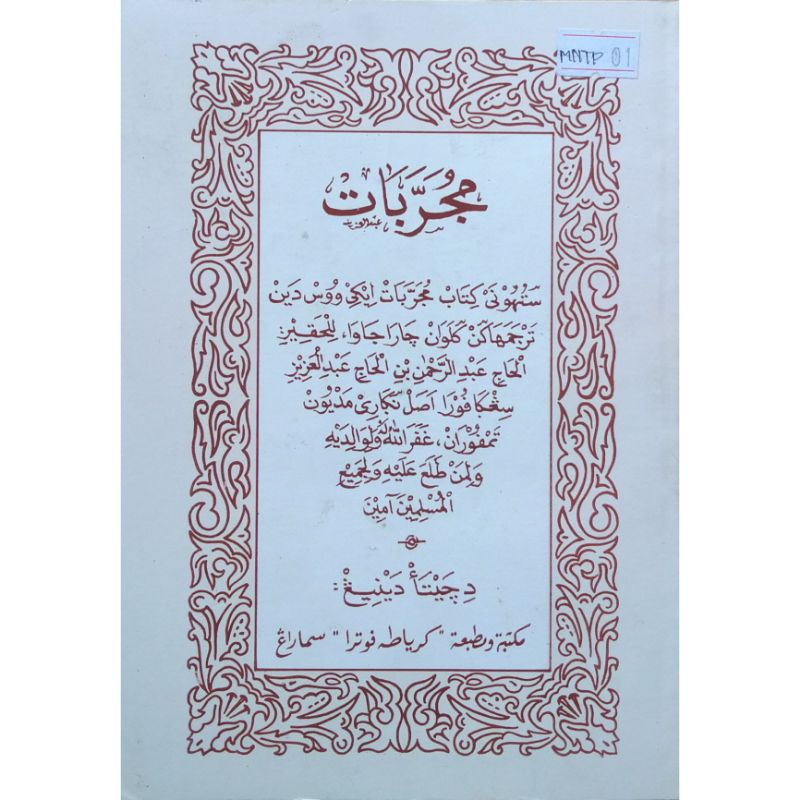 MNTP 01
مُجَرَّبَاتْ
عبد العزيز
ستُهُوْنَيْ كِتَابْ مُجَرَّبَاتْ اِيْكِيْ وُوْسْ دَيْنْ
تَرْجَمَهَاكَنْ كَلَوَانْ چَارَا جَاوَا، لِلْحَقِيْرِ:
الْحَاجِ عَبْدِ الرَّحْمٰنِ بْنِ الْحَاجِ عَبْدِ الْعَزِيْزِ
سِڠْݢَافُوْرَا اَصَلْ نَݢَارِيْ مَدْيُوْنْ
تَمْفُوْرَانْ، غَفَرَ اللهُ لَهُ وَلِوَالِدَيْهِ
وَلِمَنْ طَلَعَ عَلَيْهِ وَلِجَمِيْعِ
الْمُسْلِمِيْنَ آمِيْنَ
دِچَيْتَأْ دَيْنِيْڠْ:
مكتبة ومطبعة "كرياطه فوترا" سماراڠ